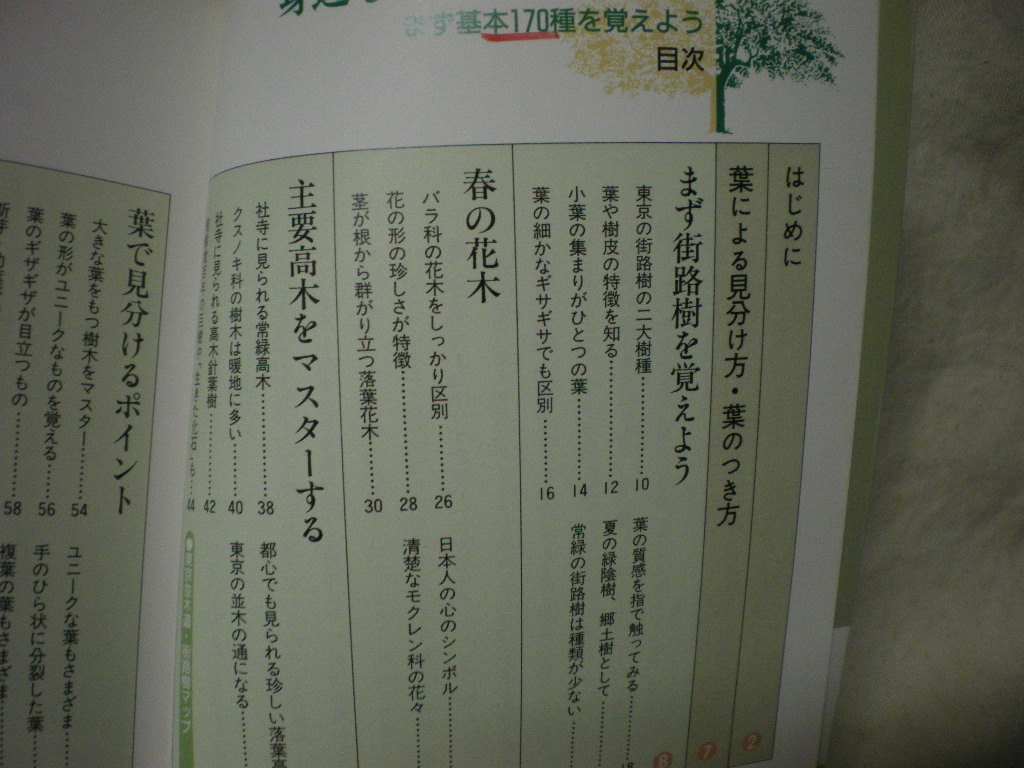 まず基本170種を覚えよう
目次
はじめに
2
葉による見分け方・葉のつき方
7
まず街路樹を覚えよう
8
東京の街路樹の二大樹種………10
葉や樹皮の特徴を知る………12
小葉の集まりがひとつの葉………14
葉の細かなギザギザでも区別………16
葉の質感を指で触ってみる………18
夏の緑陰樹、郷土樹として………
常緑の街路樹は種類が少ない………
春の花木
バラ科の花木をしっかり区別………26
花の形の珍しさが特徴………28
茎が根から群がり立つ落葉花木………30
日本人の心のシンボル………
清楚なモクレン科の花々………
主要高木をマスターする
社寺に見られる常緑高木………38
クスノキ科の樹木は暖地に多い………40
社寺に見られる高木針葉樹………42
44
都心でも見られる珍しい落葉高
東京の並木の通になる………
葉で見分けるポイント
大きな葉をもつ樹木をマスター………54
葉の形がユニークなものを覚える………56
葉のギザギザが目立つもの………58
ユニークな葉もさまざま………
手のひら状に分裂した葉………
複葉の葉もさまざま………